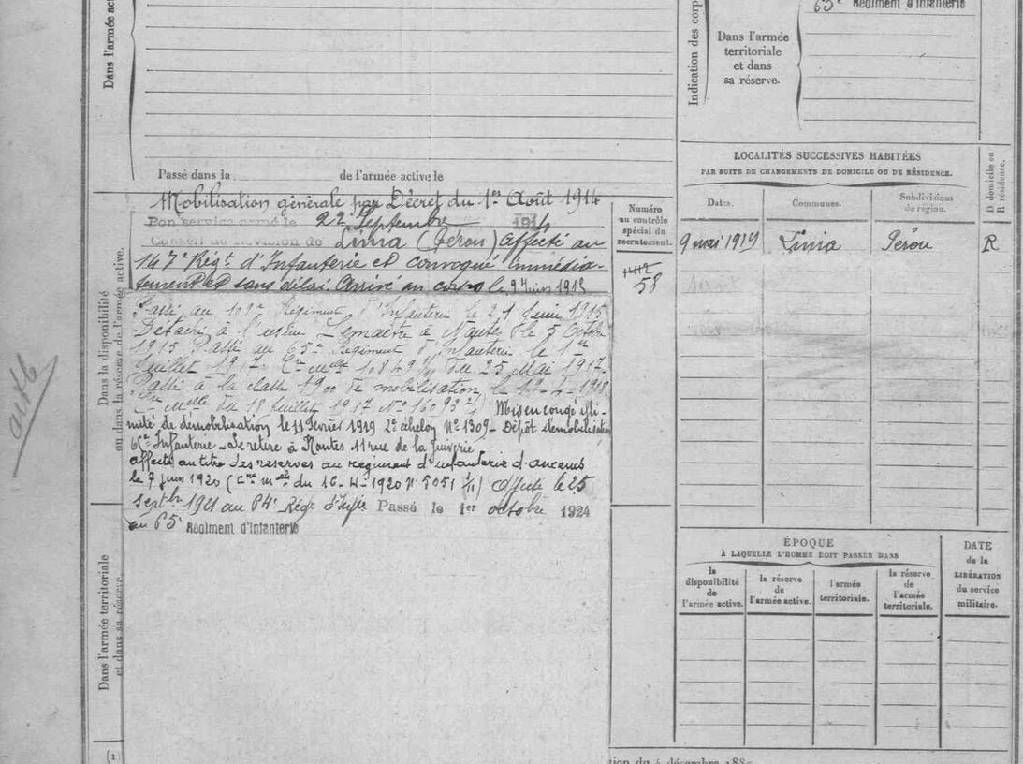 Dans l'armée active
Passé dans la de l'armée active le
Mobilisation générale par Décret du 1er Août 1914
Bon service armé le 22 Septembre 1914
Conseil de révision de Lima (Pérou) Affecté au
147e Régt. d'Infanterie et convoqué immédia-
tement et sans délai Arrivé au corps le 9 Juin 1915
Passé au 109e Régiment d'Infanterie le 21 Juin 1915
Détaché à l'usine Lemaitre à Nantes le 5 Octobre
1915 Passé au 65e Régiment d'Infanterie le 1er
Juillet 1917 Cre mlle 10849 du 25 Mai 1917.
Passé à la classe 1900 de mobilisation le
Cre mlle du 18 Juillet 1917 No Mis en congé illi-
mité de démobilisation le 11 Février 1919 2e échelon No 1309 - Dépôt démobilisateur
Infanterie - Se retire à Nantes 11 rue de la Juiverie
affecté au titre des réserves au régiment d'infanterie d'ancenis
le 7 juin 1920 (Cre mlle du 16-4-1920 No 5051 1/11) Affecté le 25
septbre 1921 au 84e Régt d'Inf. Passé le 1er octobre 1924
au 65e Régiment d'Infanterie
Dans la disponibilité
ou dans la réserve de l'armée active.
Dans l'armée territoriale
et dans sa réserve.
(1
Numéro
au contrôle
spécial du
recrutement.
58
Indication des corp
65e Régiment d'Infanterie
Dans l'armée
territoriale
et dans
sa réserve.
LOCALITÉS SUCCESSIVES HABITÉES
PAR SUITE DE CHANGEMENTS DE DOMICILE OU DE RÉSIDENCE.
Dates.
Communes.
Subdivisions
de région.
D. domicile ou
R. résidence.
9 mai 1919 Lima Pérou R
ÉPOQUE
À LAQUELLE L'HOMME DOIT PASSER DANS
la
disponibilité
de
l'armée active.
la réserve
de
l'armée active.
l'armée
territoriale.
la réserve
de
l'armée
territoriale.
DATE
de la
LIBÉRATION
du service
militaire.
tion du 4 décembre 188